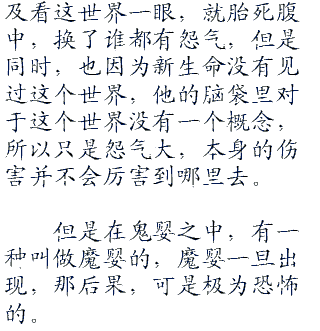 及看这世界一眼，就胎死腹
中，换了谁都有怨气，但是
同时，也因为新生命没有见
过这个世界，他的脑袋里对
于这个世界没有一个概念，
所以只是怨气大，本身的伤
害并不会厉害到哪里去。
但是在鬼婴之中，有一
种叫做魔婴的，魔婴一旦出
现，那后果，可是极为恐怖
的。